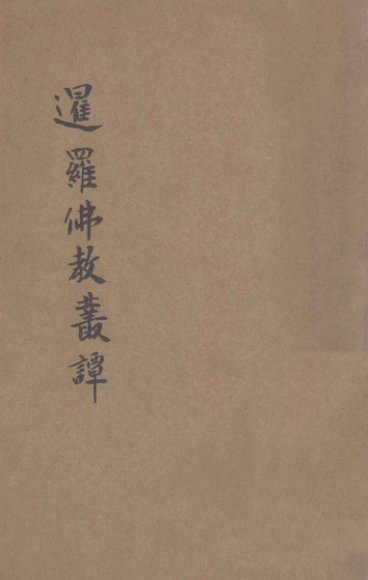 暹羅佛教叢譚